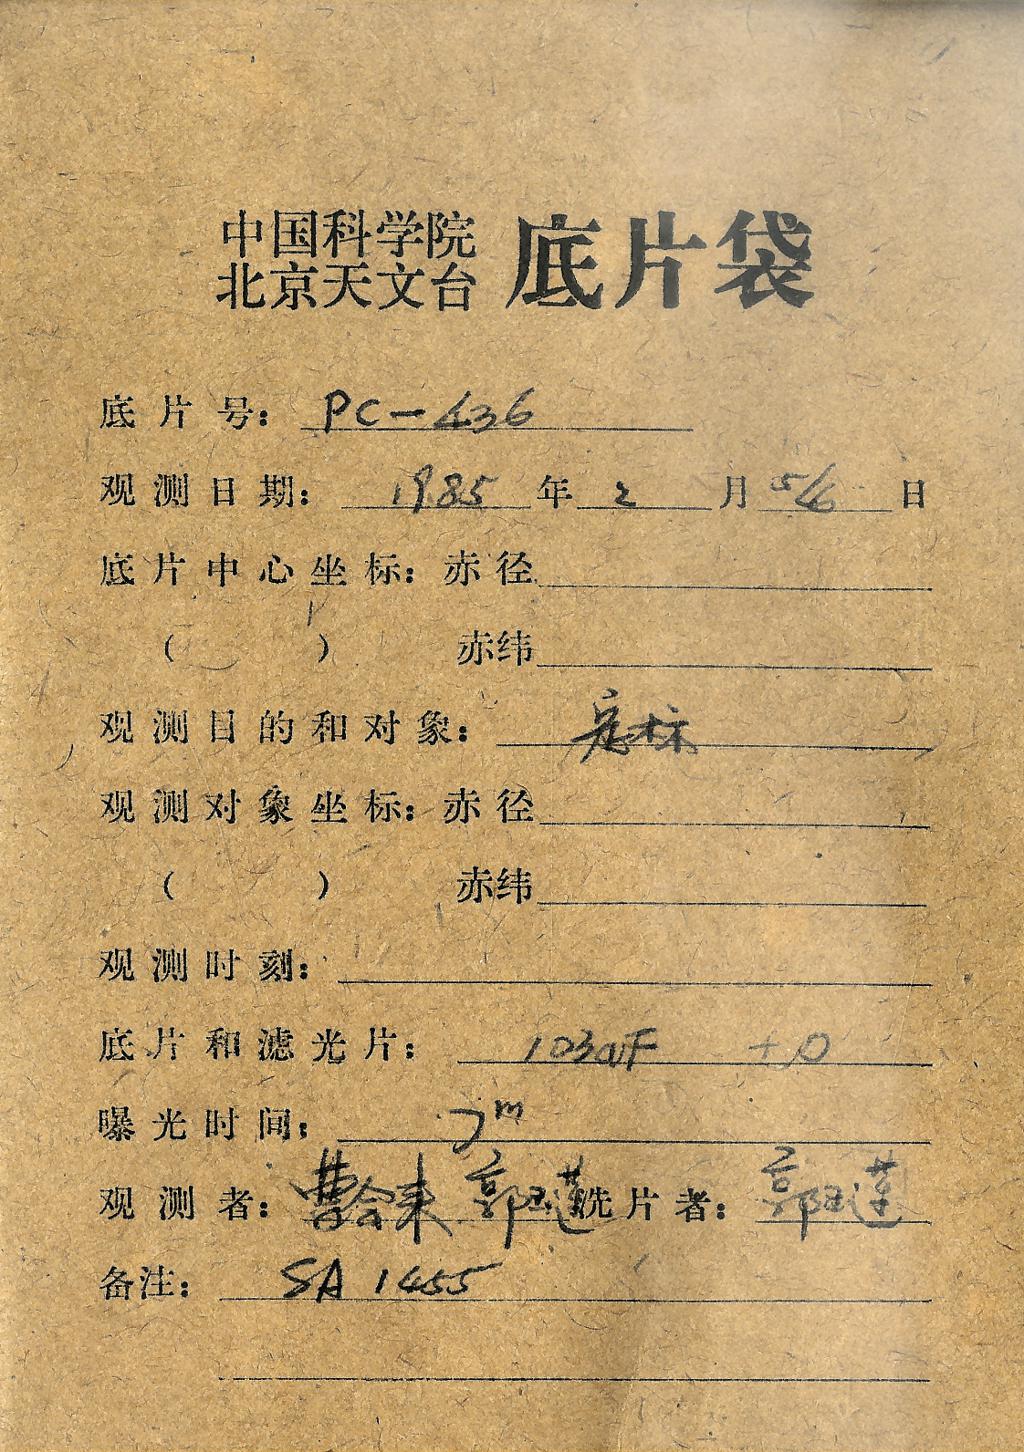 中国科学院
北京天文台 底片袋
底片号: PC-436
观测日期: 1985年2月5/6日
底片中心坐标: 赤径
( ) 赤纬
观测目的和对象: 定标
观测对象坐标: 赤径
( ) 赤纬
观测时刻:
底片和滤光片: 103aF +0
曝光时间: 7m
观测者: 曹会来 郭玉莲 洗片者: 郭玉莲
备注: SA 1455